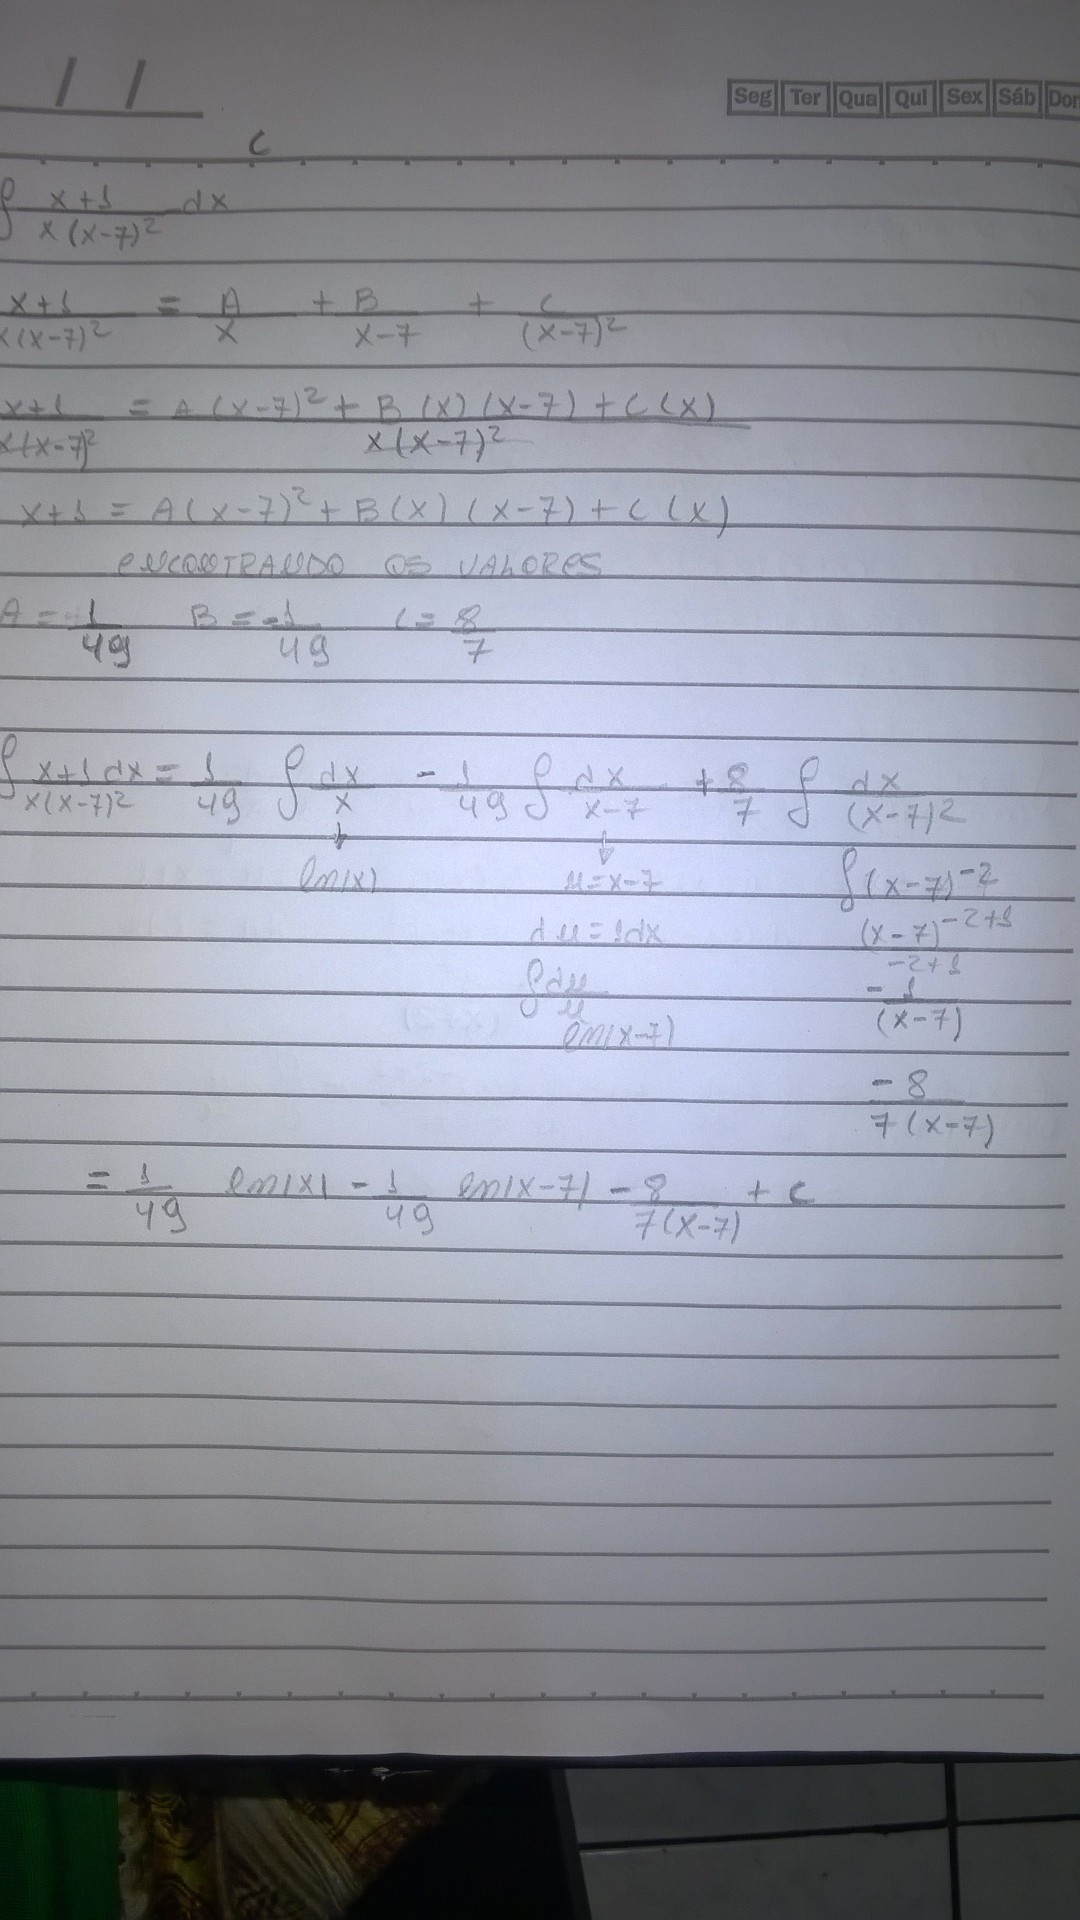 / /
Seg Ter Qua Qui Sex Sáb Dom
C
∫ x+1/x(x-7)² dx
x+1/x(x-7)² = A/x + B/x-7 + C/(x-7)²
x+1/x(x-7)² = A(x-7)² + B(x)(x-7) + C(x)/x(x-7)²
x+1 = A(x-7)² + B(x)(x-7) + C(x)
ENCONTRANDO OS VALORES
A = 1/49 B = -1/49 C = 8/7
∫ x+1 dx/x(x-7)² = 1/49 ∫ dx/x - 1/49 ∫ dx/x-7 + 8/7 ∫ dx/(x-7)²
↓ ↓
ln|x| u=x-7 ∫(x-7)⁻²
du = 1dx (x-7)⁻²⁺¹/-2+1
∫ du/u -1/(x-7)
ln|x-7|
-8/7(x-7)
= 1/49 ln|x| - 1/49 ln|x-7| - 8/7(x-7) + c